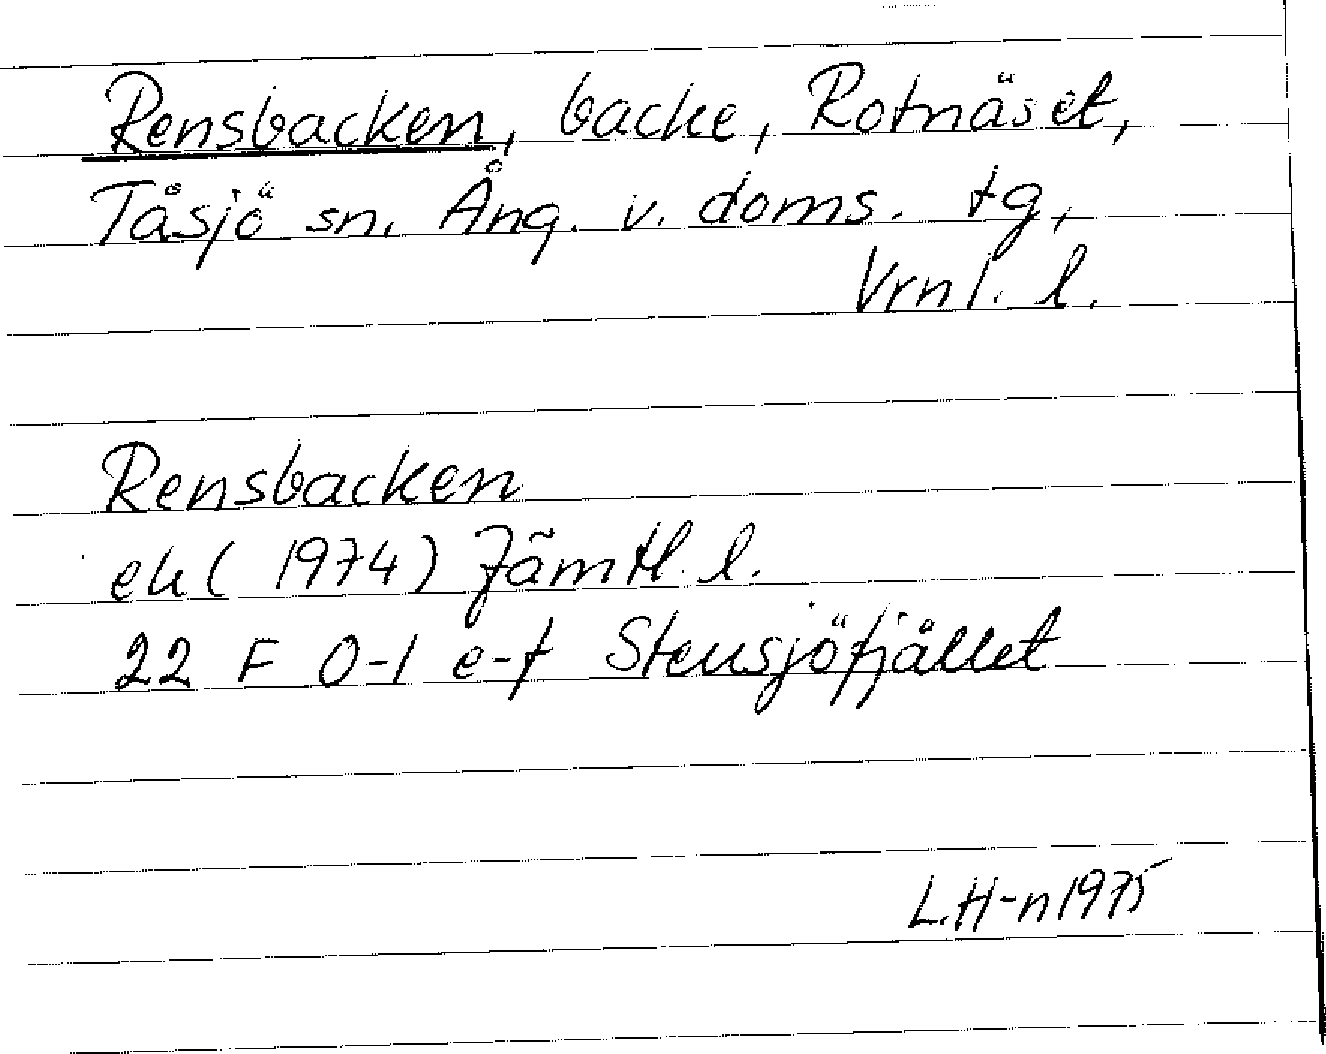 Rensbacken, backe, Rotnäset,
Tåsjö sn. Ång. v. doms. tg,
Vrnl. l.
Rensbacken
ek (1974) Jämtl. l.
22 F 0-1 e-f Stensjöfjället
L.H-n 1975